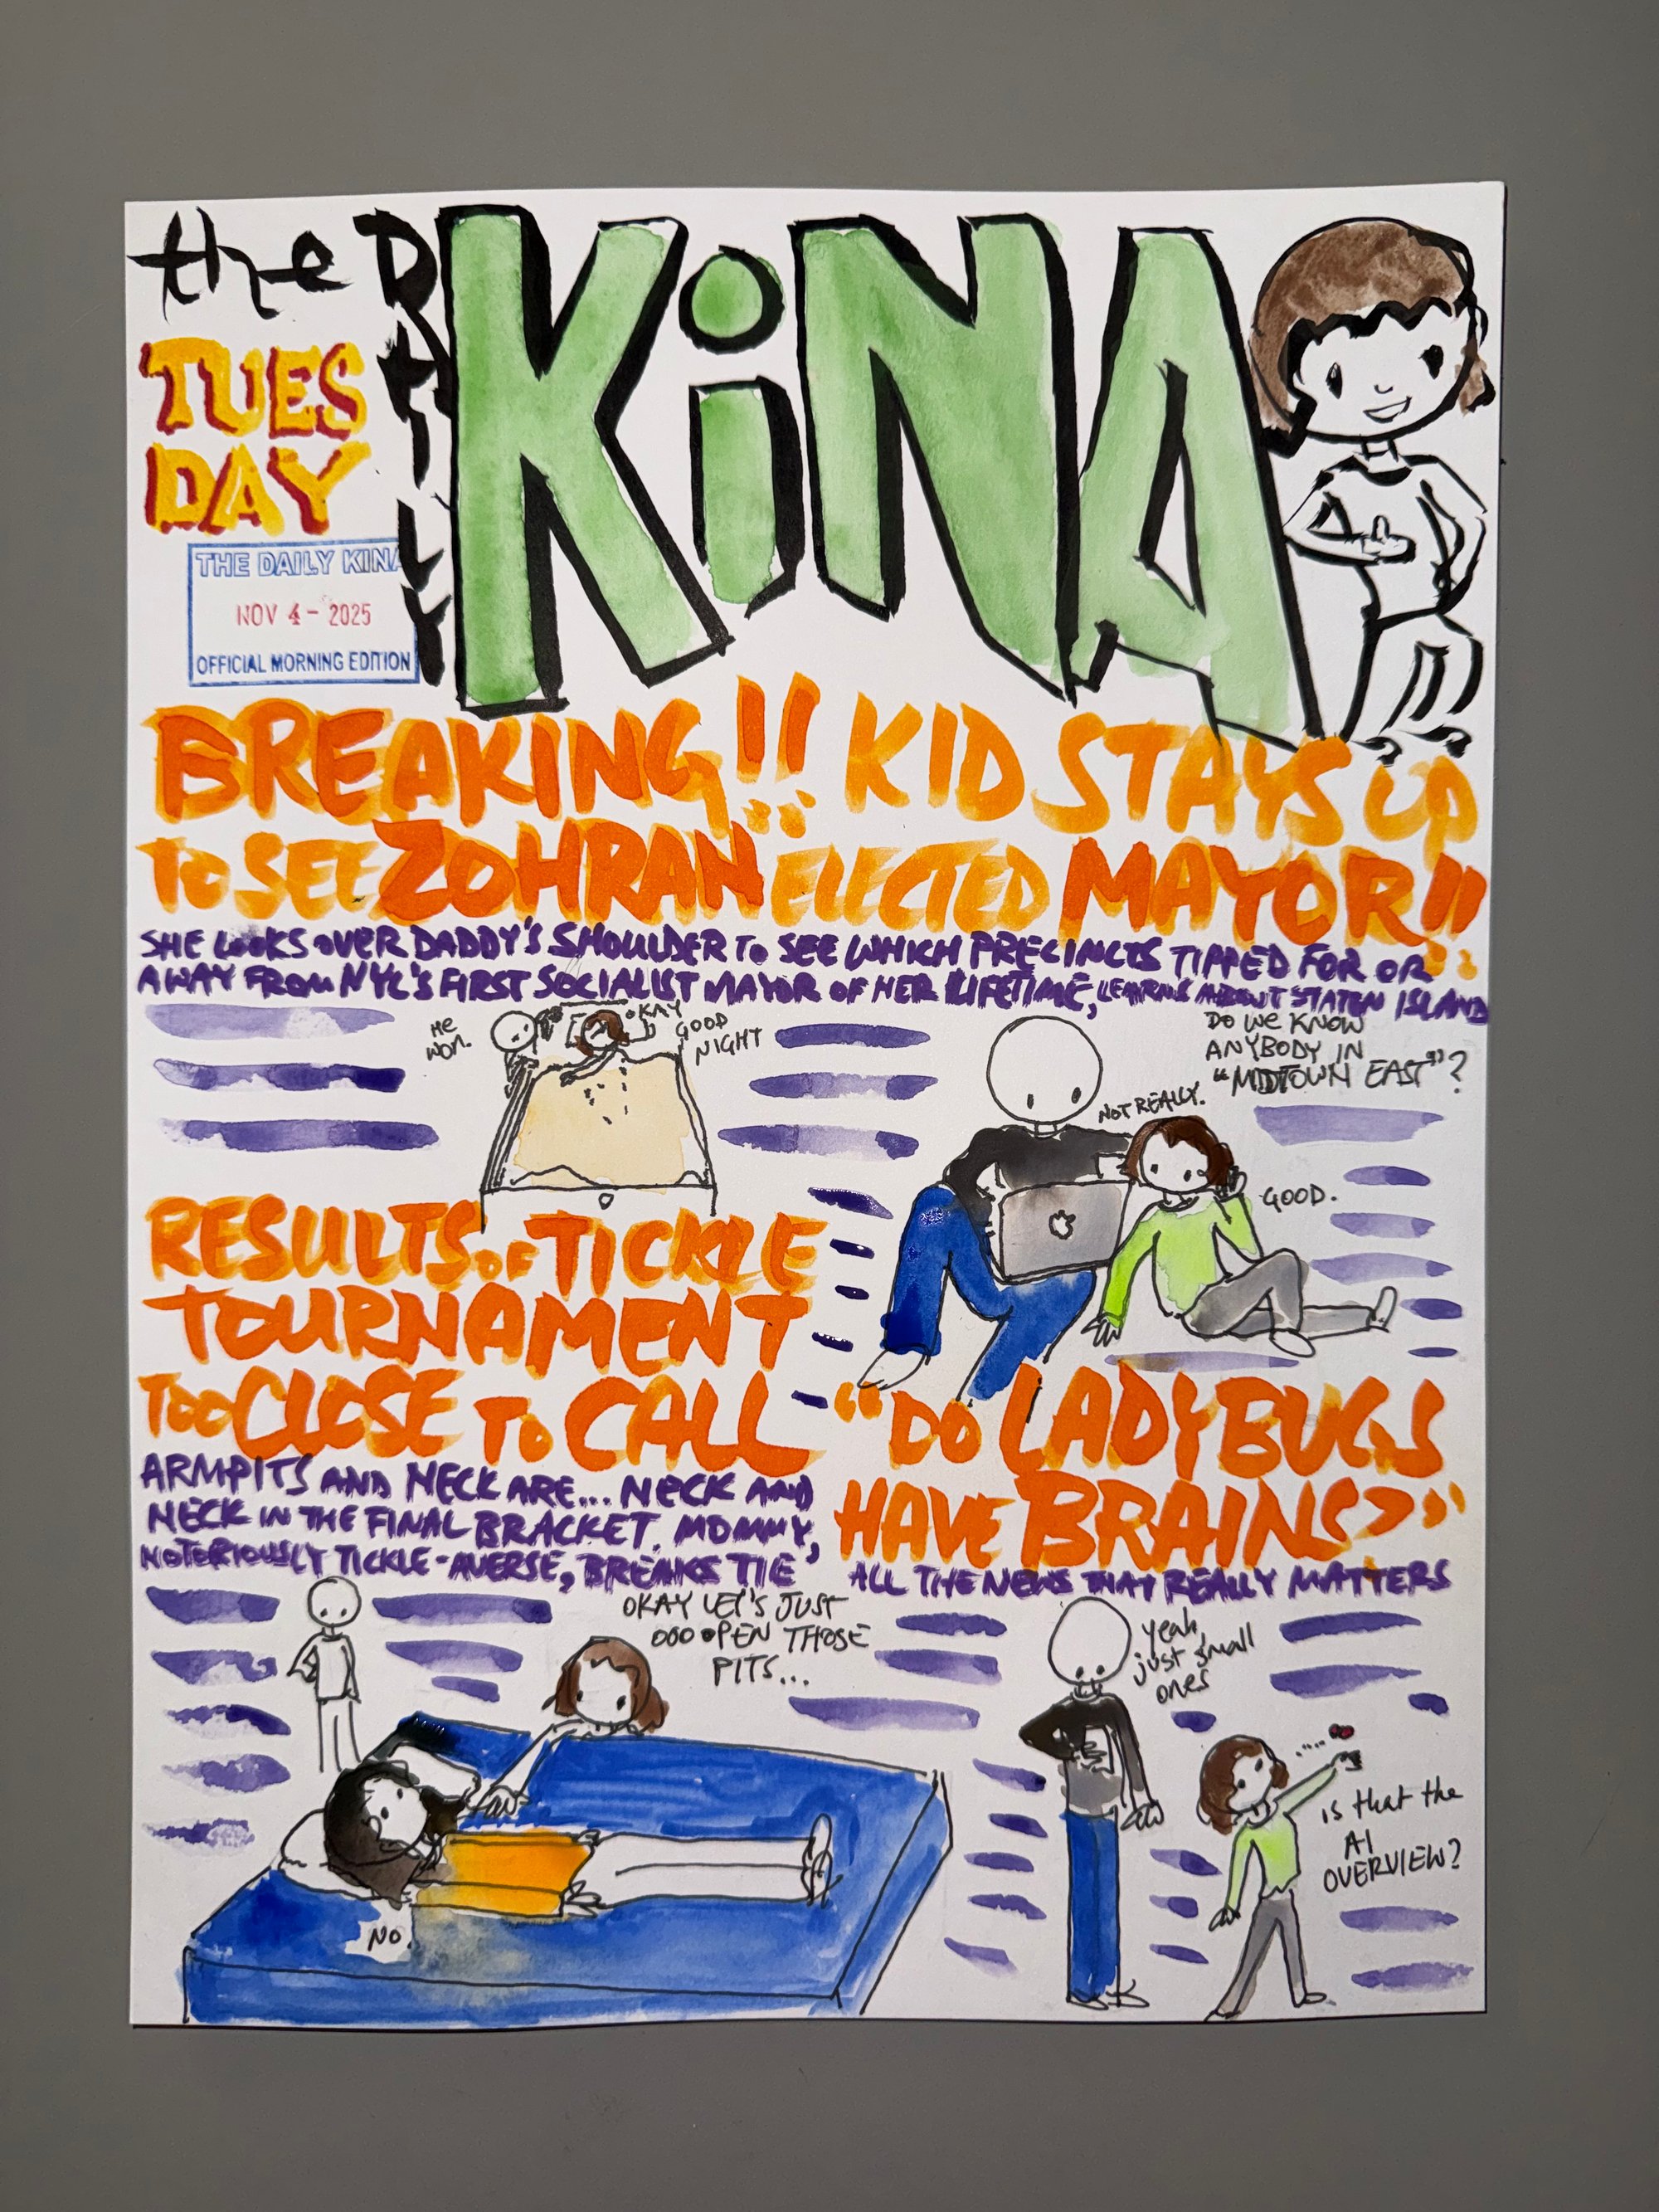 the DAILY KiNA
TUES
DAY
THE DAILY KINA
NOV 4 - 2025
OFFICIAL MORNING EDITION
BREAKING!! KID STAYS UP
TO SEE ZOHRAN ELECTED MAYOR!!
SHE LOOKS OVER DADDY'S SHOULDER TO SEE WHICH PRECINCTS TIPPED FOR OR
AWAY FROM NYC'S FIRST SOCIALIST MAYOR OF HER LIFETIME, LEARNS ABOUT STATEN ISLAND
HE
WON.
OKAY
GOOD
NIGHT
DO WE KNOW
ANYBODY IN
"MIDTOWN EAST"?
NOT REALLY.
GOOD.
RESULTS OF TICKLE
TOURNAMENT
TOO CLOSE TO CALL
ARMPITS AND NECK ARE... NECK AND
NECK IN THE FINAL BRACKET. MOMMY,
NOTORIOUSLY TICKLE-AVERSE, BREAKS TIE
OKAY LET'S JUST
OOO OPEN THOSE
PITS...
NO.
"DO LADYBUGS
HAVE BRAINS?"
ALL THE NEWS THAT REALLY MATTERS
yeah,
just small
ones
is that the
AI
OVERVIEW?